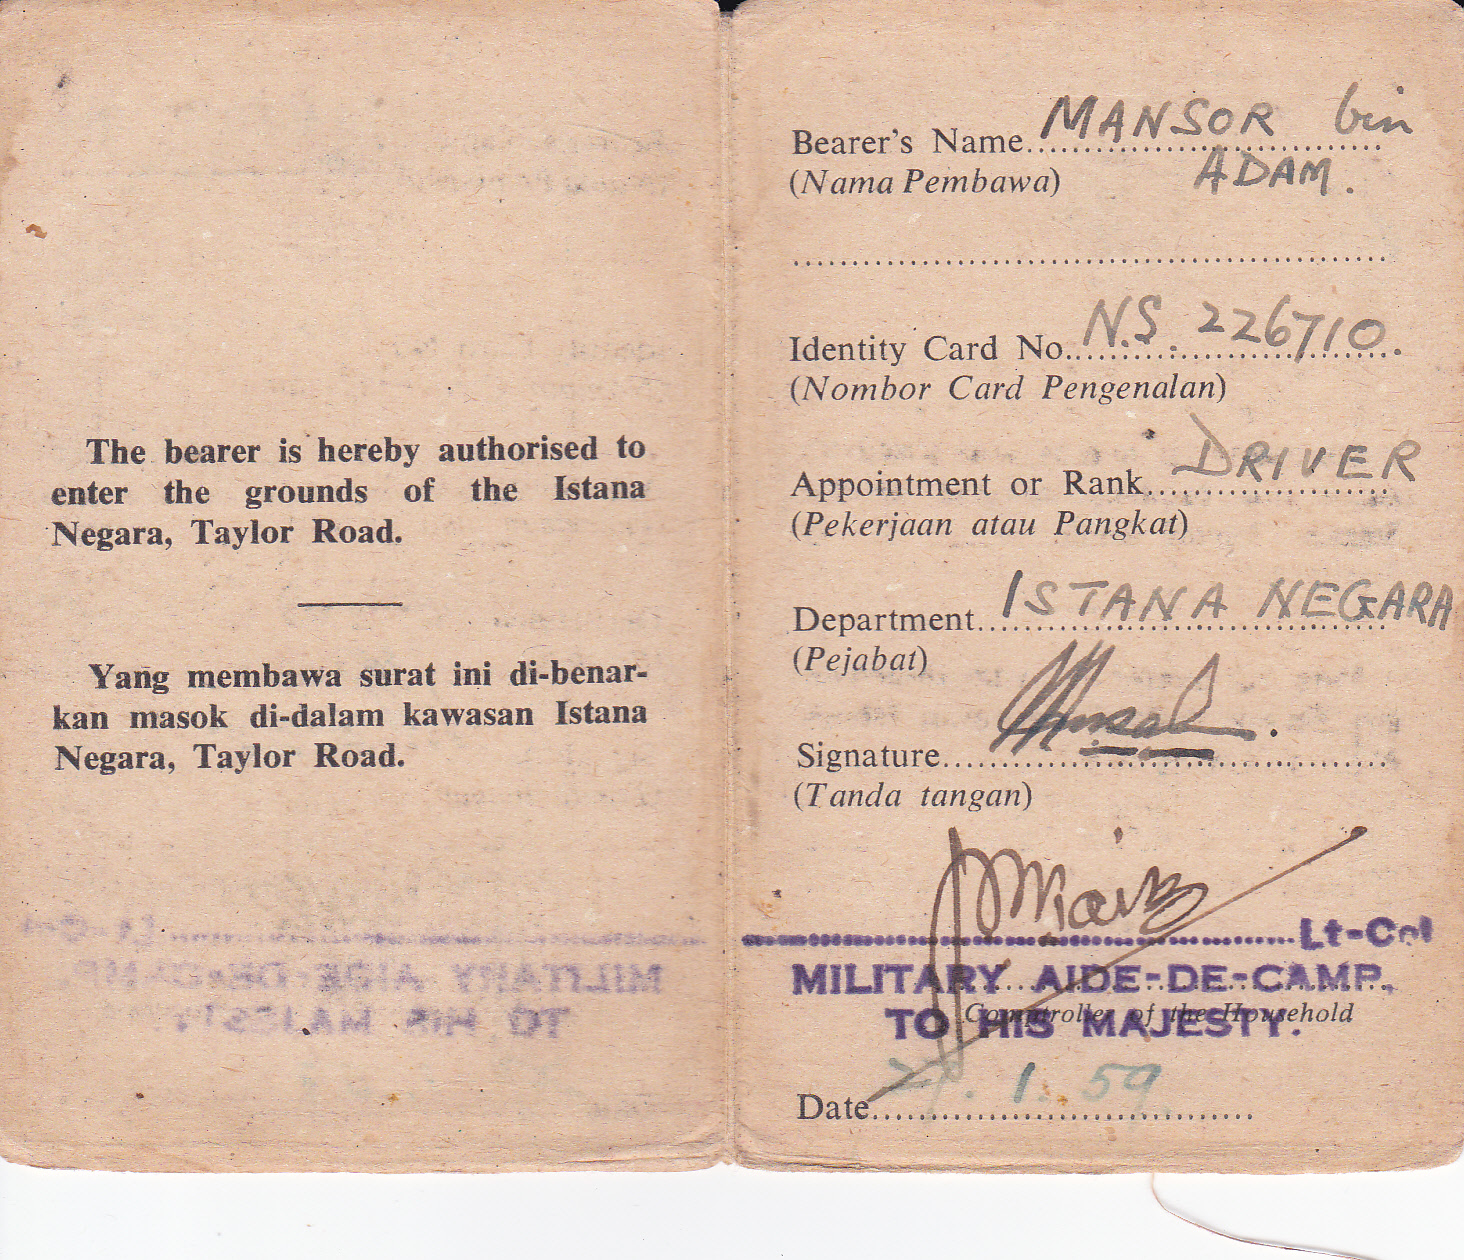 The bearer is hereby authorised to
enter the grounds of the Istana
Negara, Taylor Road.
Yang membawa surat ini di-benar-
kan masok di-dalam kawasan Istana
Negara, Taylor Road.
Bearer's Name MANSOR bin
(Nama Pembawa) ADAM.
Identity Card No. N.S. 226710
(Nombor Card Pengenalan)
Appointment or Rank DRIVER
(Pekerjaan atau Pangkat)
Department ISTANA NEGARA
(Pejabat)
Signature
(Tanda tangan)
Lt-Col
MILITARY AIDE-DE-CAMP,
Comptroller of the Household
TO HIS MAJESTY.
Date 1. 59